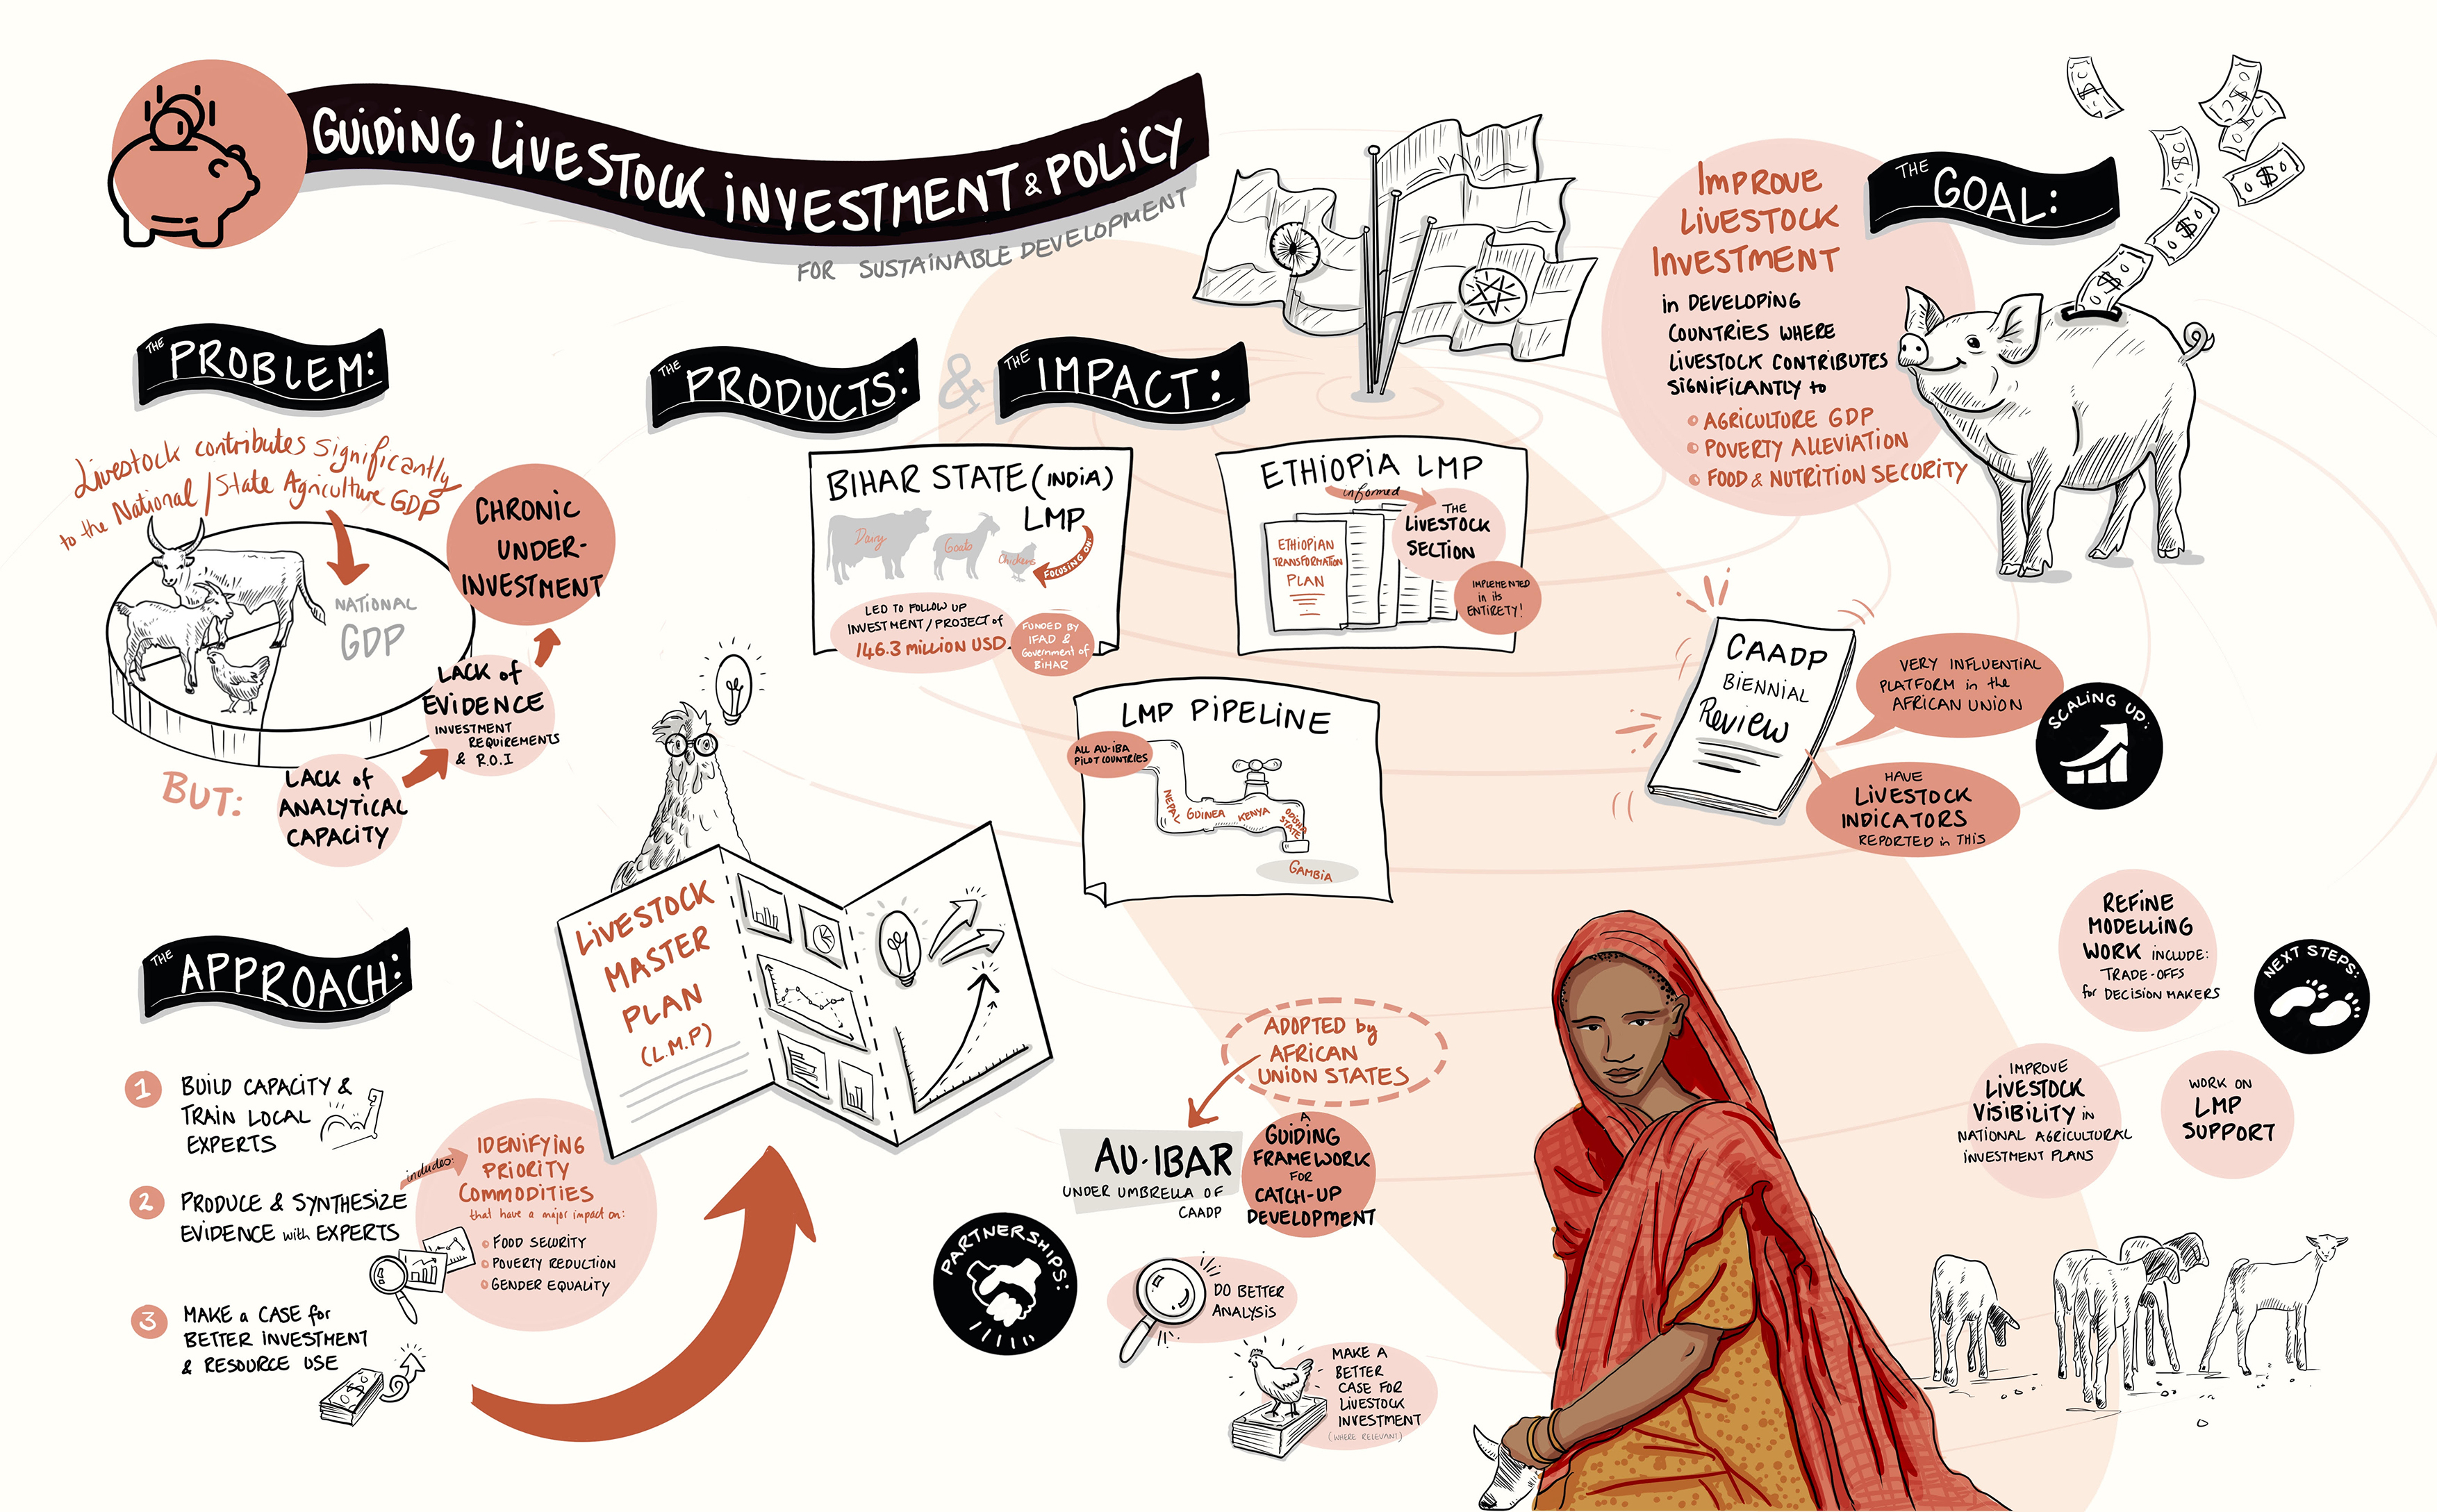 GUIDING LIVESTOCK INVESTMENT & POLICY
FOR SUSTAINABLE DEVELOPMENT
THE PROBLEM:
Livestock contributes significantly
to the National/State Agriculture GDP
NATIONAL
GDP
BUT:
LACK of
ANALYTICAL
CAPACITY
LACK of
EVIDENCE
INVESTMENT
REQUIREMENTS
& R.O.I
CHRONIC
UNDER-
INVESTMENT
THE APPROACH:
1 BUILD CAPACITY &
TRAIN LOCAL
EXPERTS
2 PRODUCE & SYNTHESIZE
EVIDENCE with EXPERTS
includes:
IDENIFYING
PRIORITY
COMMODITIES
that have a major impact on:
FOOD SECURITY
POVERTY REDUCTION
GENDER EQUALITY
3 MAKE a CASE for
BETTER INVESTMENT
& RESOURCE USE
LIVESTOCK
MASTER
PLAN
(L.M.P)
THE PRODUCTS: & THE IMPACT:
BIHAR STATE (INDIA)
LMP
FOCUSING ON:
Dairy
Goats
Chickens
LED TO FOLLOW UP
INVESTMENT/PROJECT of
146.3 MILLION USD
FUNDED BY
IFAD &
Government of
BIHAR
ETHIOPIA LMP
informed
THE
LIVESTOCK
SECTION
ETHIOPIAN
TRANSFORMATION
PLAN
IMPLEMENTED
in its
ENTIRETY!
LMP PIPELINE
ALL AU-IBA
PILOT COUNTRIES
NEPAL
GUINEA
KENYA
ODISHA
STATE
GAMBIA
ADOPTED by
AFRICAN
UNION STATES
AU-IBAR
UNDER UMBRELLA OF
CAADP
A
GUIDING
FRAMEWORK
FOR
CATCH-UP
DEVELOPMENT
PARTNERSHIPS:
DO BETTER
ANALYSIS
MAKE A
BETTER
CASE FOR
LIVESTOCK
INVESTMENT
(WHERE RELEVANT)
THE GOAL:
IMPROVE
LIVESTOCK
INVESTMENT
in DEVELOPING
COUNTRIES WHERE
LIVESTOCK CONTRIBUTES
SIGNIFICANTLY to
AGRICULTURE GDP
POVERTY ALLEVIATION
FOOD & NUTRITION SECURITY
CAADP
BIENNIAL
Review
VERY INFLUENTIAL
PLATFORM in the
AFRICAN UNION
HAVE
LIVESTOCK
INDICATORS
REPORTED in THIS
SCALING UP:
REFINE
MODELLING
WORK INCLUDE:
TRADE-OFFS
for DECISION MAKERS
NEXT STEPS:
IMPROVE
LIVESTOCK
VISIBILITY in
NATIONAL AGRICULTURAL
INVESTMENT PLANS
WORK ON
LMP
SUPPORT